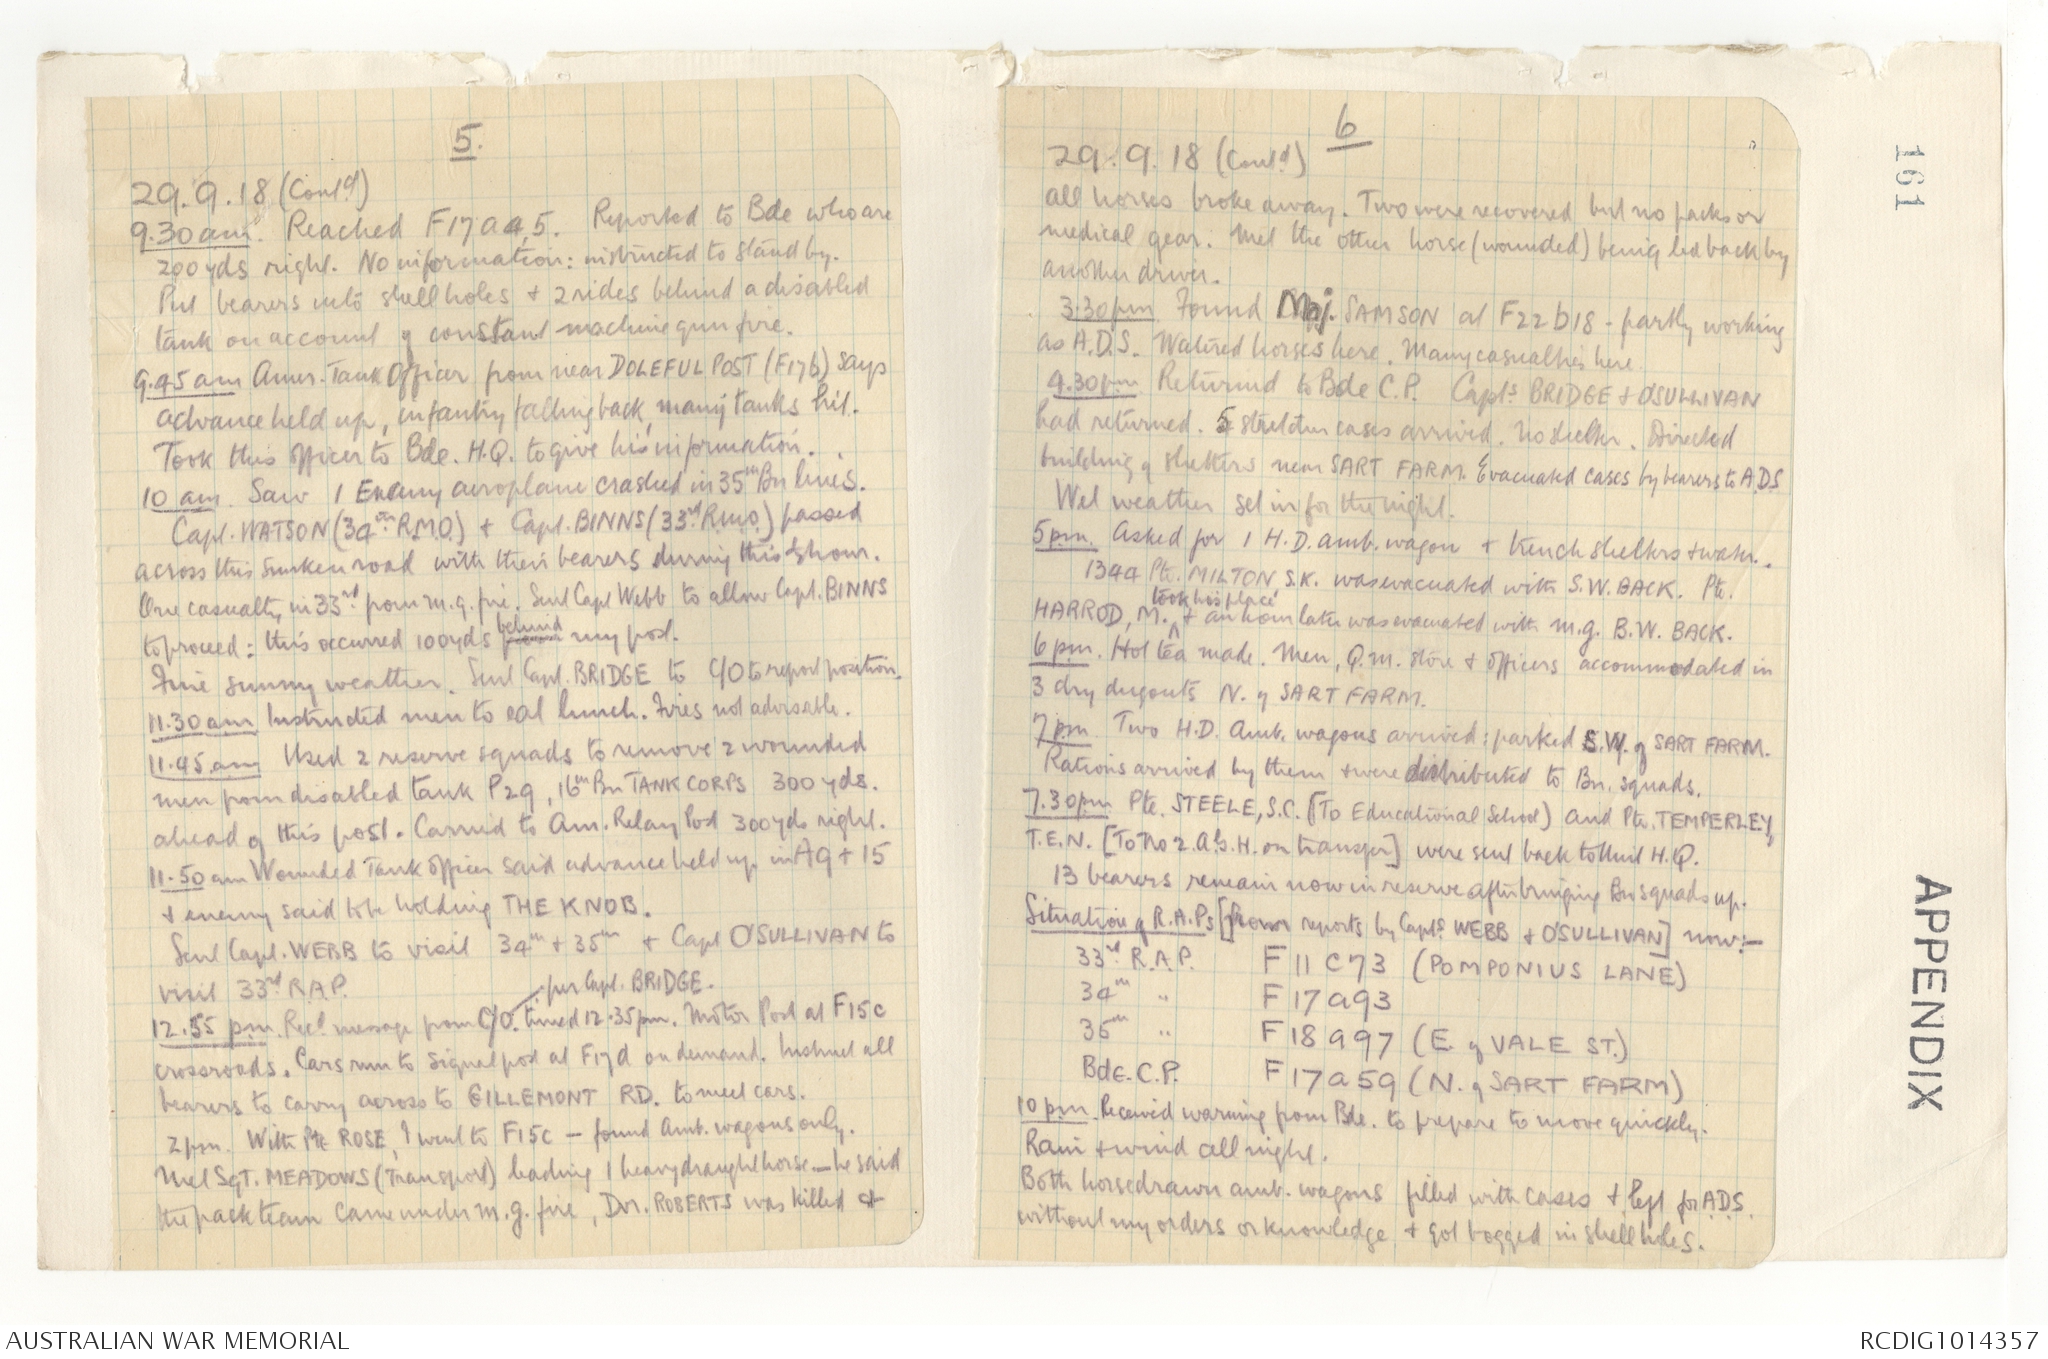 5.
29.9.18 (Contd)
9.30 am. Reached F17a4,5. Reported to Bde who are
200 yds right. No information: instructed to stand by.
Put bearers into shell holes + 2 rides behind a disabled
tank on account of constant machine gun fire.
9.45 am Amer. Tank Officer from near DOLEFUL POST (F17b) says
advance held up, infantry falling back, many tanks hit.
Took this officer to Bde. H.Q. to give his information.
10 am. Saw 1 Enemy aeroplane crashed in 35th Bn lines.
Capt. WATSON (34th R.M.O.) + Capt. BINNS (33rd R.M.O.) passed
across this sunken road with their bearers during this ½ hour.
One casualty in 33rd from m.g. fire. Sent Capt Webb to allow Capt. BINNS
to proceed: this occurred 100 yds behind my post.
Fine sunny weather. Sent Capt. BRIDGE to C/O to report position.
11.30 am Instructed men to eat lunch. Fires not advisable.
11.45 am Used 2 reserve squads to remove 2 wounded
men from disabled tank P29, 16th Bn TANK CORPS 300 yds.
ahead of this post. Carried to Am. Relay Post 300 yds right.
11.50 am Wounded Tank Officer said advance held up in A9 + 15
+ enemy said to be holding THE KNOB.
Sent Capt. WEBB to visit 34th + 35th + Capt O'SULLIVAN to
visit 33rd R.A.P.
per Capt. BRIDGE.
12.55 pm. Recd message from C/O. timed 12.35 pm. Motor Post at F15c
crossroads. Cars run to Signal post at F17d on demand. Instruct all
bearers to carry across to GILLEMONT RD. to meet cars.
2 pm. With Pte ROSE, I went to F15c – found Amb. wagons only.
Met SGT. MEADOWS (Transport) leading 1 heavy draught horse – he said
the pack team came under m.g. fire, Dvr. ROBERTS was killed +
6
29.9.18 (Contd)
all horses broke away. Two were recovered but no packs or
medical gear. Met the other horse (wounded) being led back by
another driver.
3.30 pm Found Maj. SAMSON at F22b18 - partly working
as A.D.S. Watered horses here. Many casualties here.
4.30 pm Returned to Bde C.P. Capts BRIDGE + O'SULLIVAN
had returned. 5 stretcher cases arrived. No shelter. Directed
building of shelters near SART FARM. Evacuated cases by bearers to A.D.S
Wet weather set in for the night.
5 pm. Asked for 1 H.D. amb. wagon + trench shelters + water.
1344 Pte. MILTON S.K. was evacuated with S.W. BACK. Pte.
took his place
HARROD, M. ^ + an hour later was evacuated with m.g. B.W. BACK.
6 pm. Hot tea made. Men, Q.M. store + officers accommodated in
3 dry dugouts N. of SART FARM.
7 pm Two H.D. Amb. wagons arrived: parked S.W. of SART FARM.
Rations arrived by them + were distributed to Bn. squads.
7.30 pm Pte. STEELE, S.C. (To Educational School) and Pte. TEMPERLEY,
T.E.N. [To No 2. A.G.H. on transfer] were sent back to Unit H.Q.
13 bearers remain now in reserve after bringing Bn squads up.
Situation of R.A.Ps [from reports by Capts. WEBB + O'SULLIVAN] now:-
33rd R.A.P. F 11 C 73 (POMPONIUS LANE)
34th " F 17 a 93
35th " F 18 a 97 (E. of VALE ST.)
Bde. C.P. F 17 a 59 (N. of SART FARM)
10 pm. Received warning from Bde. to prepare to move quickly.
Rain + wind all night.
Both horsedrawn amb. wagons filled with cases + left for A.D.S.
without my orders or knowledge + got bogged in shell holes.
161
APPENDIX
AUSTRALIAN WAR MEMORIAL
RCDIG1014357